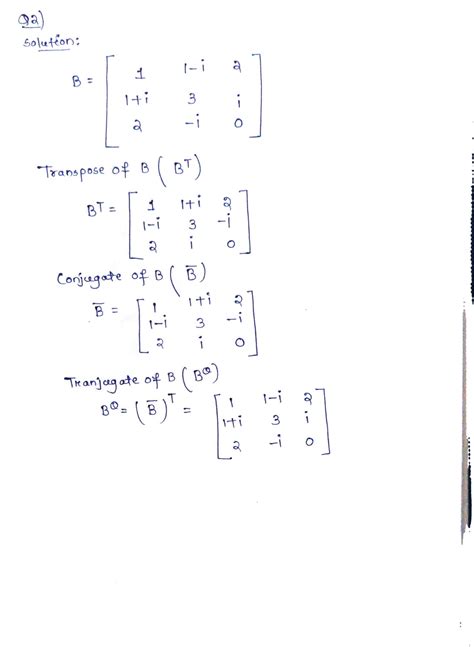 Q2)
Solution:
B = [ 1 1-i 2
1+i 3 i
2 -i 0 ]
Transpose of B ( B^T )
B^T = [ 1 1+i 2
1-i 3 -i
2 i 0 ]
Conjugate of B ( B̅ )
B̅ = [ 1 1+i 2
1-i 3 -i
2 i 0 ]
Tranjugate of B ( B^θ )
B^θ = ( B̅ )^T = [ 1 1-i 2
1+i 3 i
2 -i 0 ]